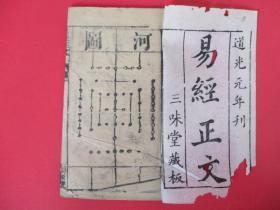 道光元年刊
易經正文
三味堂藏板
河圖